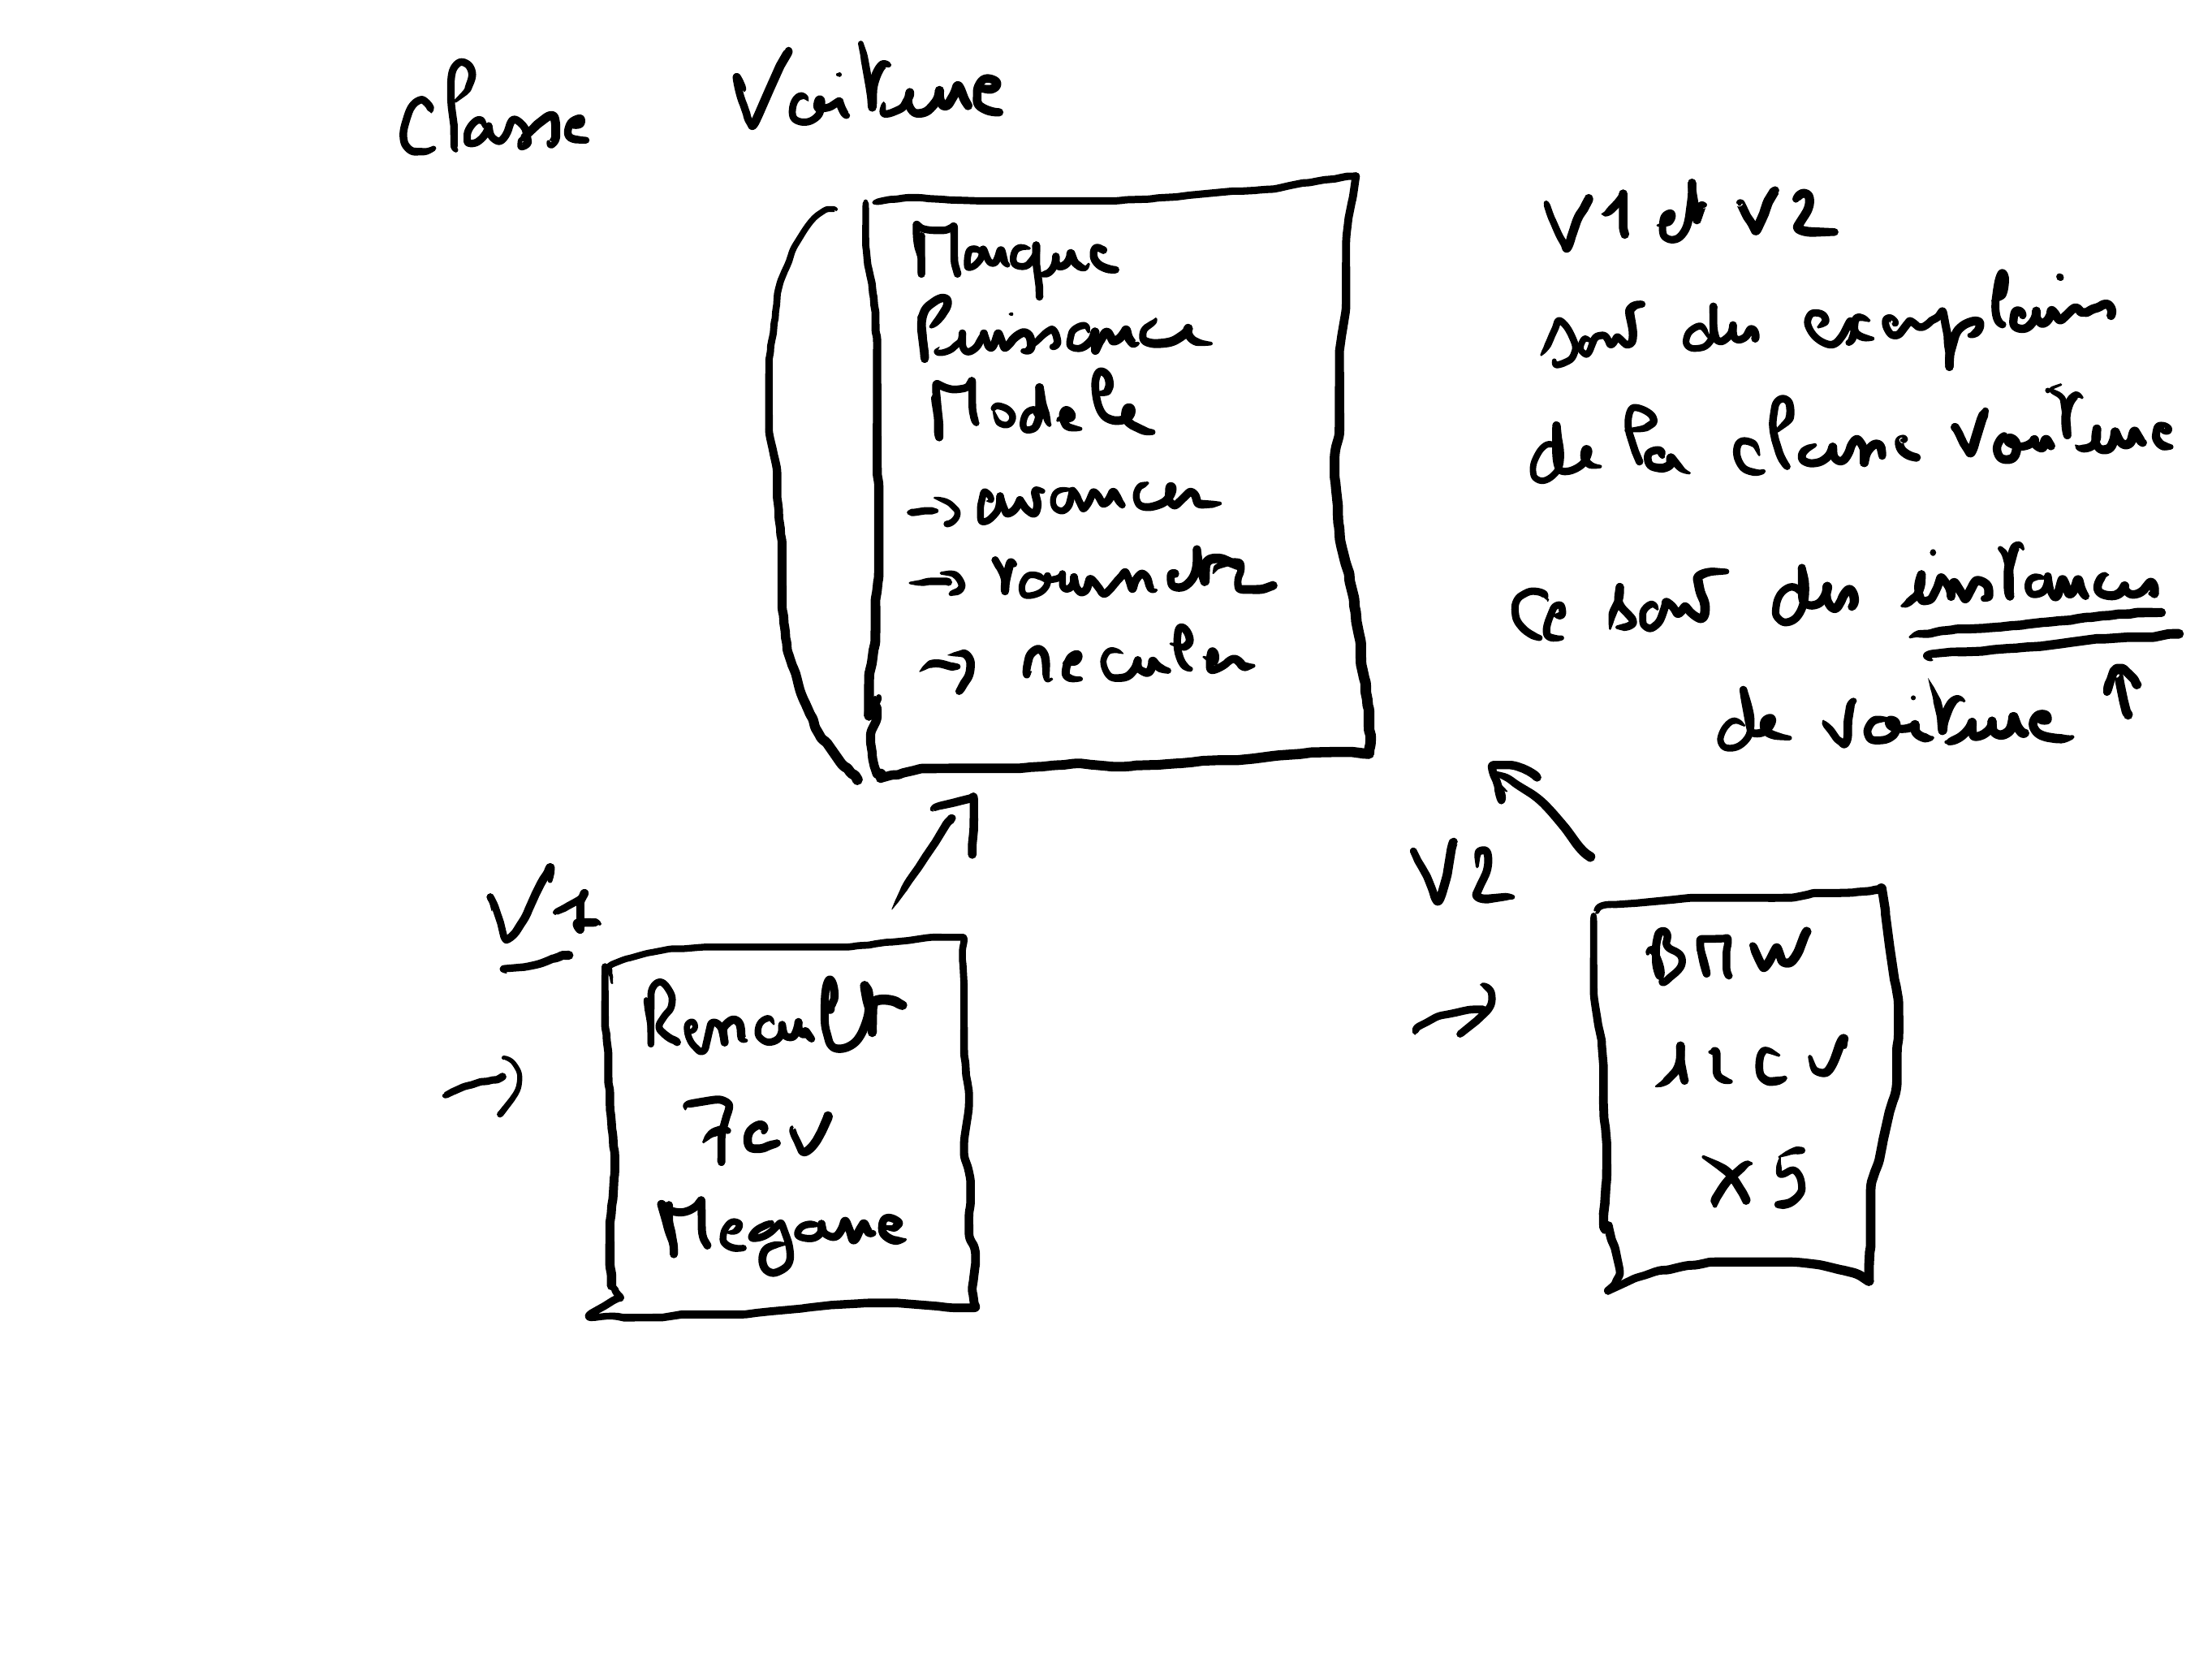 Classe Voiture
Marque
Puissance
Modele
→ avancer
→ 
→ reculer
V1 et V2
sont des exemplaires
de la classe voiture
ce sont des instances
de voiture ↑
V1
→ Renault
7cv
Megane
V2
→ BMW
12cv
X5